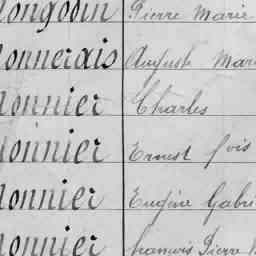 longodin Pierre Marie
lonnerais Auguste Mari
lonnier Charles
lonnier Ernest fois
lonnier Eugène Gabri
lonnier francois Pierre